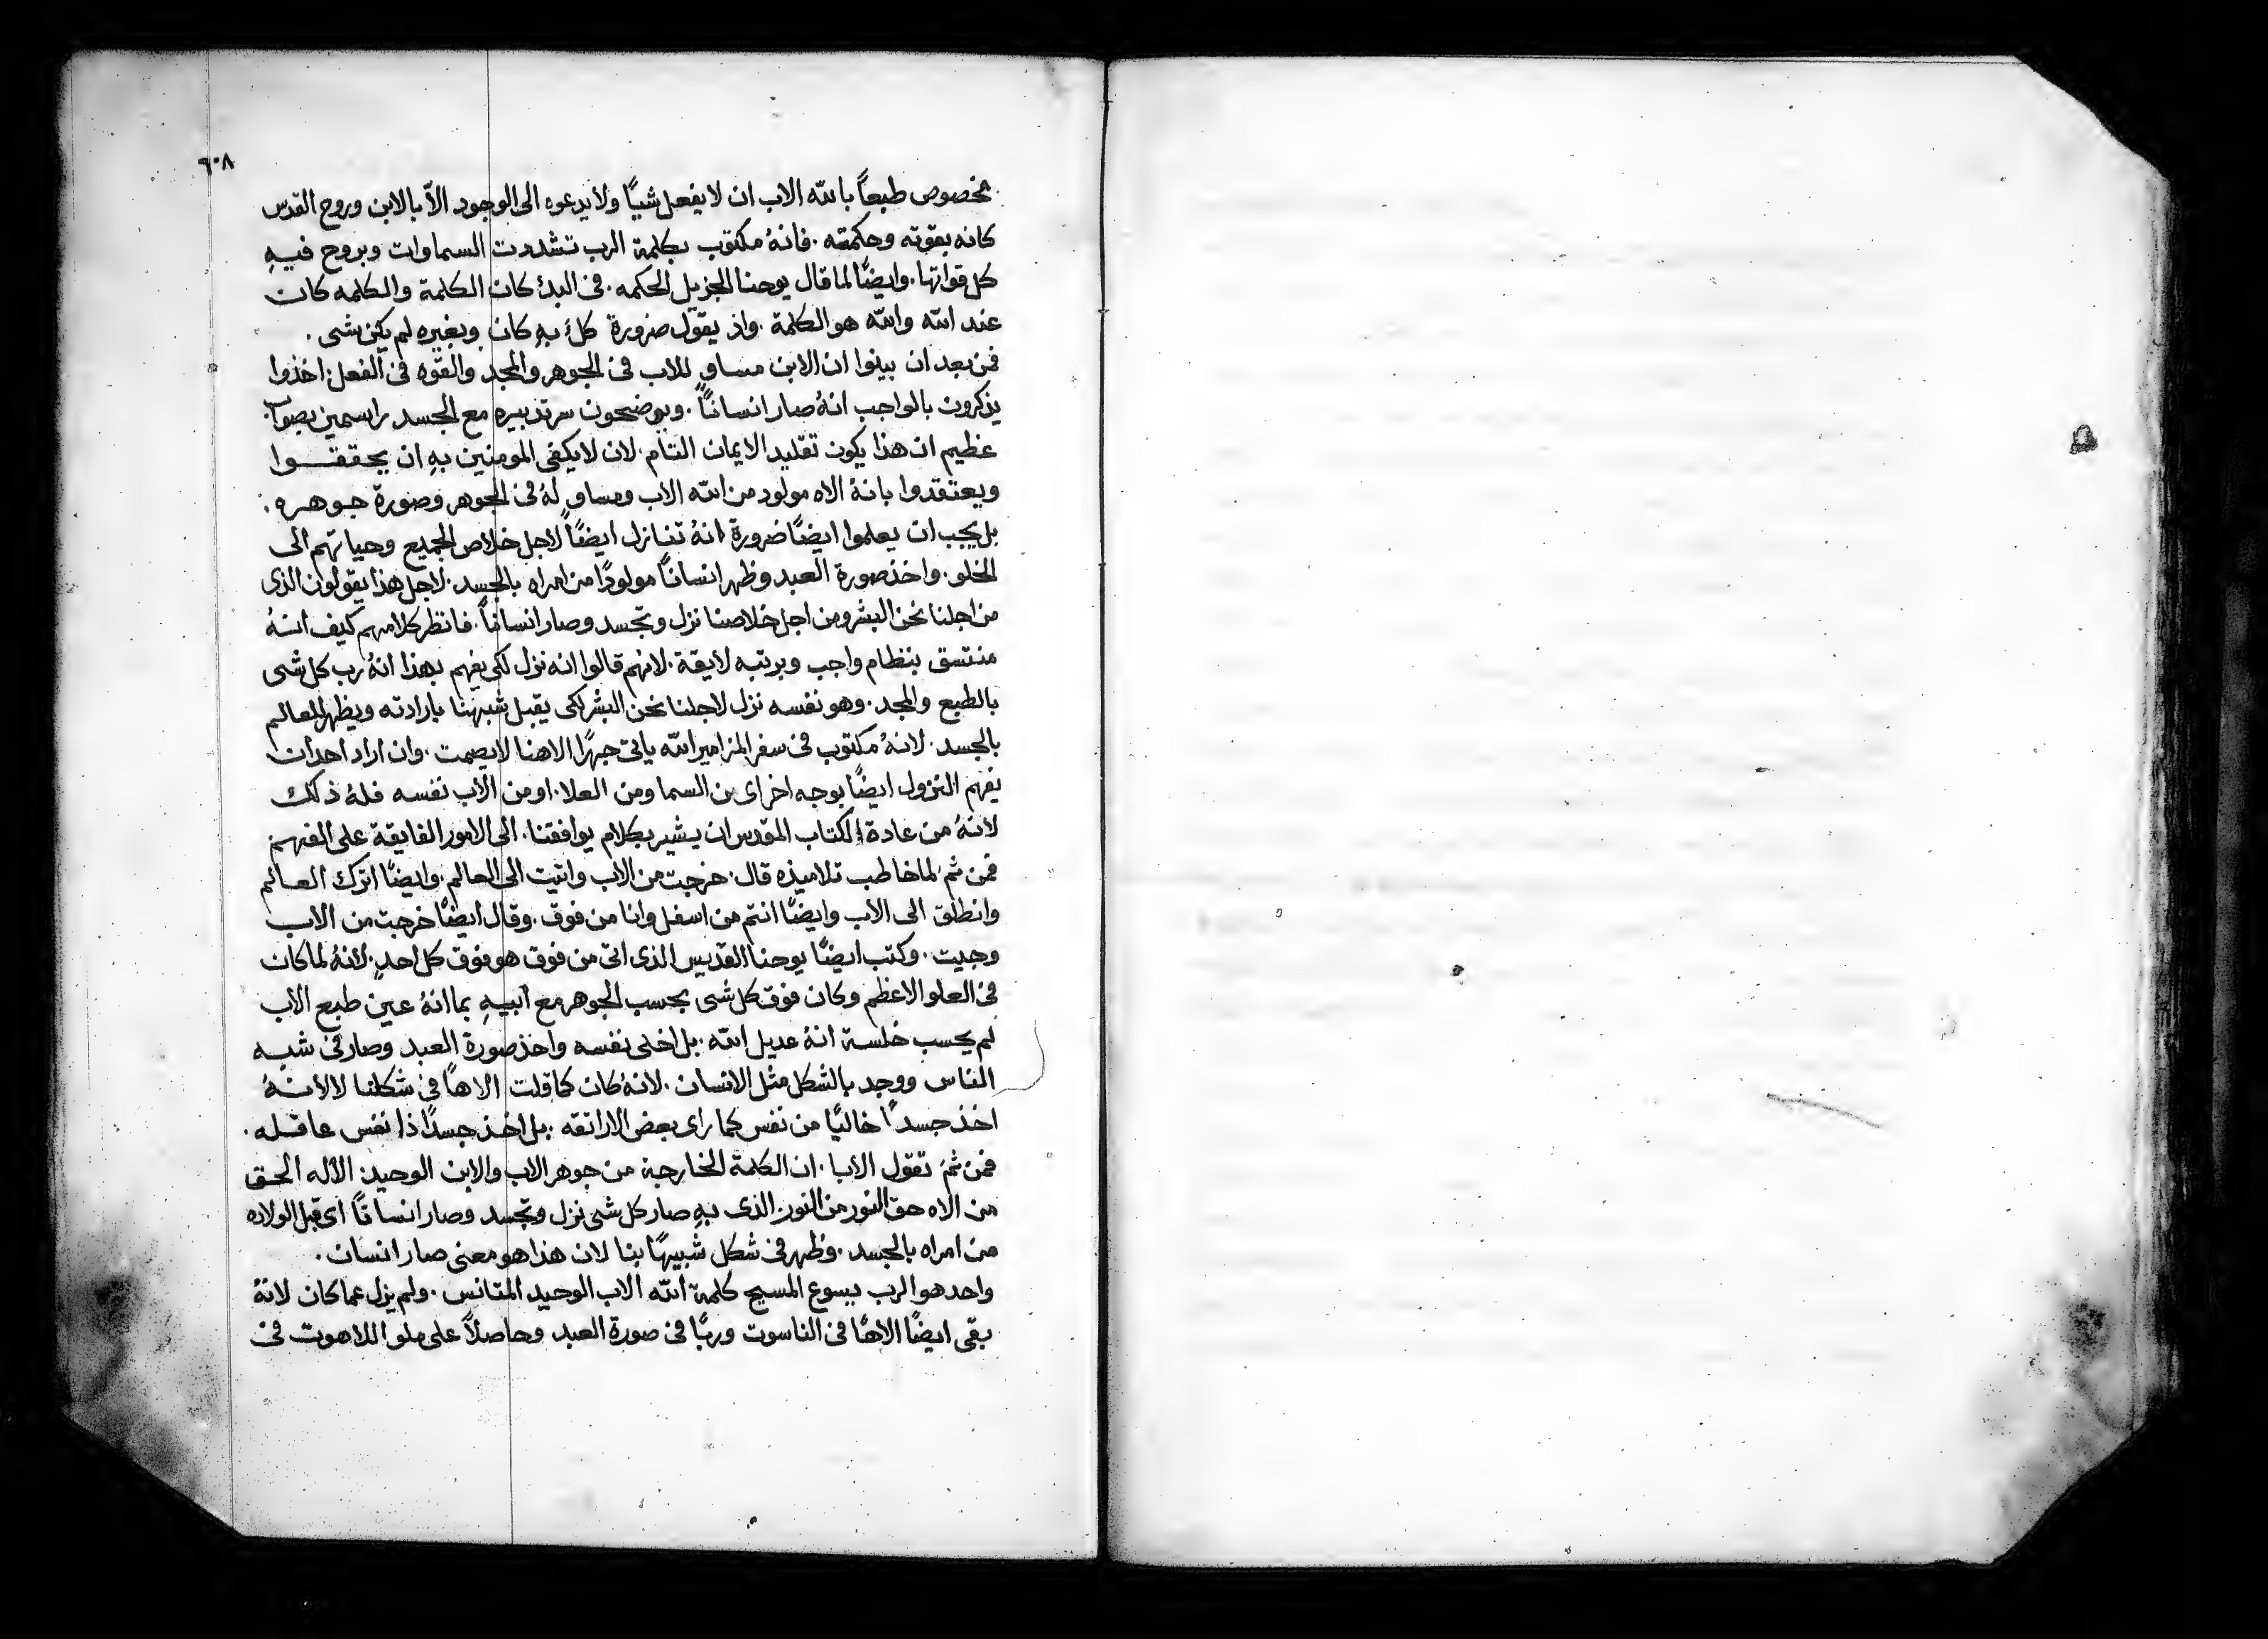 ٦٠٨
مخصوص طبعاً بالله الاب ان لا يفعل شيًا ولا يدعوه الى الوجود الاّ بالابن وروح القدس
كانه بقوته وحكمته . فانهُ مكتوب بكلمة الرب تشددت السماوات وبروح فيهِ
كل قواتها . وايضًا لما قال يوحنا الجزيل الحكمه . فى البدء كان الكلمة والكلمه كان
عند الله والله هو الكلمة . واذ يقول ضرورة كلٌ بهِ كان وبغيره لم يكن شى .
فمن بعد ان بينوا ان الابن مساوٍ للاب فى الجوهر والمجد والقوه فى الفعل . اخذوا
يذكرون بالواجب انهُ صار انسانًا . ويوضحون سر تدبيره مع الجسد راسمين بصواب
عظيم ان هذا يكون تقليد الايمان التام . لان لا يكفى المومنين بهِ ان يحققوا
ويعتقدوا بانهُ الاه مولود من الله الاب ومساوٍ لهُ فى الجوهر وصورة جوهره .
بل يجب ان يعلموا ايضًا ضرورة انهُ تنازل ايضًا لاجل خلاص الجميع وحياتهم الى
الخلو . واخذ صورة العبد وظهر انسانًا مولودًا من امراه بالجسد . لاجل هذا يقولون الذى
من اجلنا نحن البشر ومن اجل خلاصنا نزل وتجسد وصار انسانًا . فانظر كلامهم كيف انهُ
منتسق بنظام واجب وبرتبه لايقة . لانهم قالوا انه نزل لكى يفهم بهذا انهُ رب كل شى
بالطبع والمجد . وهو نفسه نزل لاجلنا نحن البشر لكى يقبل شبهنا بارادته ويظهر للعالم
بالجسد . لانهُ مكتوب فى سفر المزامير الله ياتى جهرًا الاهنا لا يصمت . وان اراد احد ان
يفهم النزول ايضًا بوجه اخر اى من السما ومن العلا . او من الاب نفسه فلهُ ذلك
لانهُ من عادة الكتاب المقدس ان يشير بكلام يوافقنا . الى الامور الفايقة على الفهم
فمن ثم لما خاطب تلاميذه قال . خرجت من الاب واتيت الى العالم . وايضًا اترك العالم
وانطلق الى الاب وايضًا انتم من اسفل وانا من فوق . وقال ايضًا خرجت من الاب
وجيت . وكتب ايضًا يوحنا القديس الذى اتى من فوق هو فوق كل احدٍ . لانهُ لما كان
فى العلو الاعظم وكان فوق كل شى بحسب الجوهر مع ابيهِ بما انهُ عين طبع الاب
لم يحسب خلسة انهُ عديل الله . بل اخلى نفسه واخذ صورة العبد وصار فى شبه
الناس ووجد بالشكل مثل الانسان . لانهُ كان كما قلت الاهًا فى شكلنا لا لانهُ
اخذ جسدًا خاليًا من نفس كما راى بعض الاراتقه . بل اخذ جسدًا ذا نفس عاقله .
فمن ثمَ تقول الابا . ان الكلمة الخارجة من جوهر الاب والابن الوحيد . الاله الحق
من الاه حق النور من النور . الذى بهِ صار كل شى نزل وتجسد وصار انسانًا اى قبل الولاده
من امراه بالجسد . وظهر فى شكل شبيهًا بنا لان هذا هو معنى صار انسان .
واحد هو الرب يسوع المسيح كلمة الله الاب الوحيد المتانس . ولم يزل عما كان لانهُ
بقى ايضًا الاهًا فى الناسوت وربًا فى صورة العبد وحاصلاً على ملو اللاهوت فى